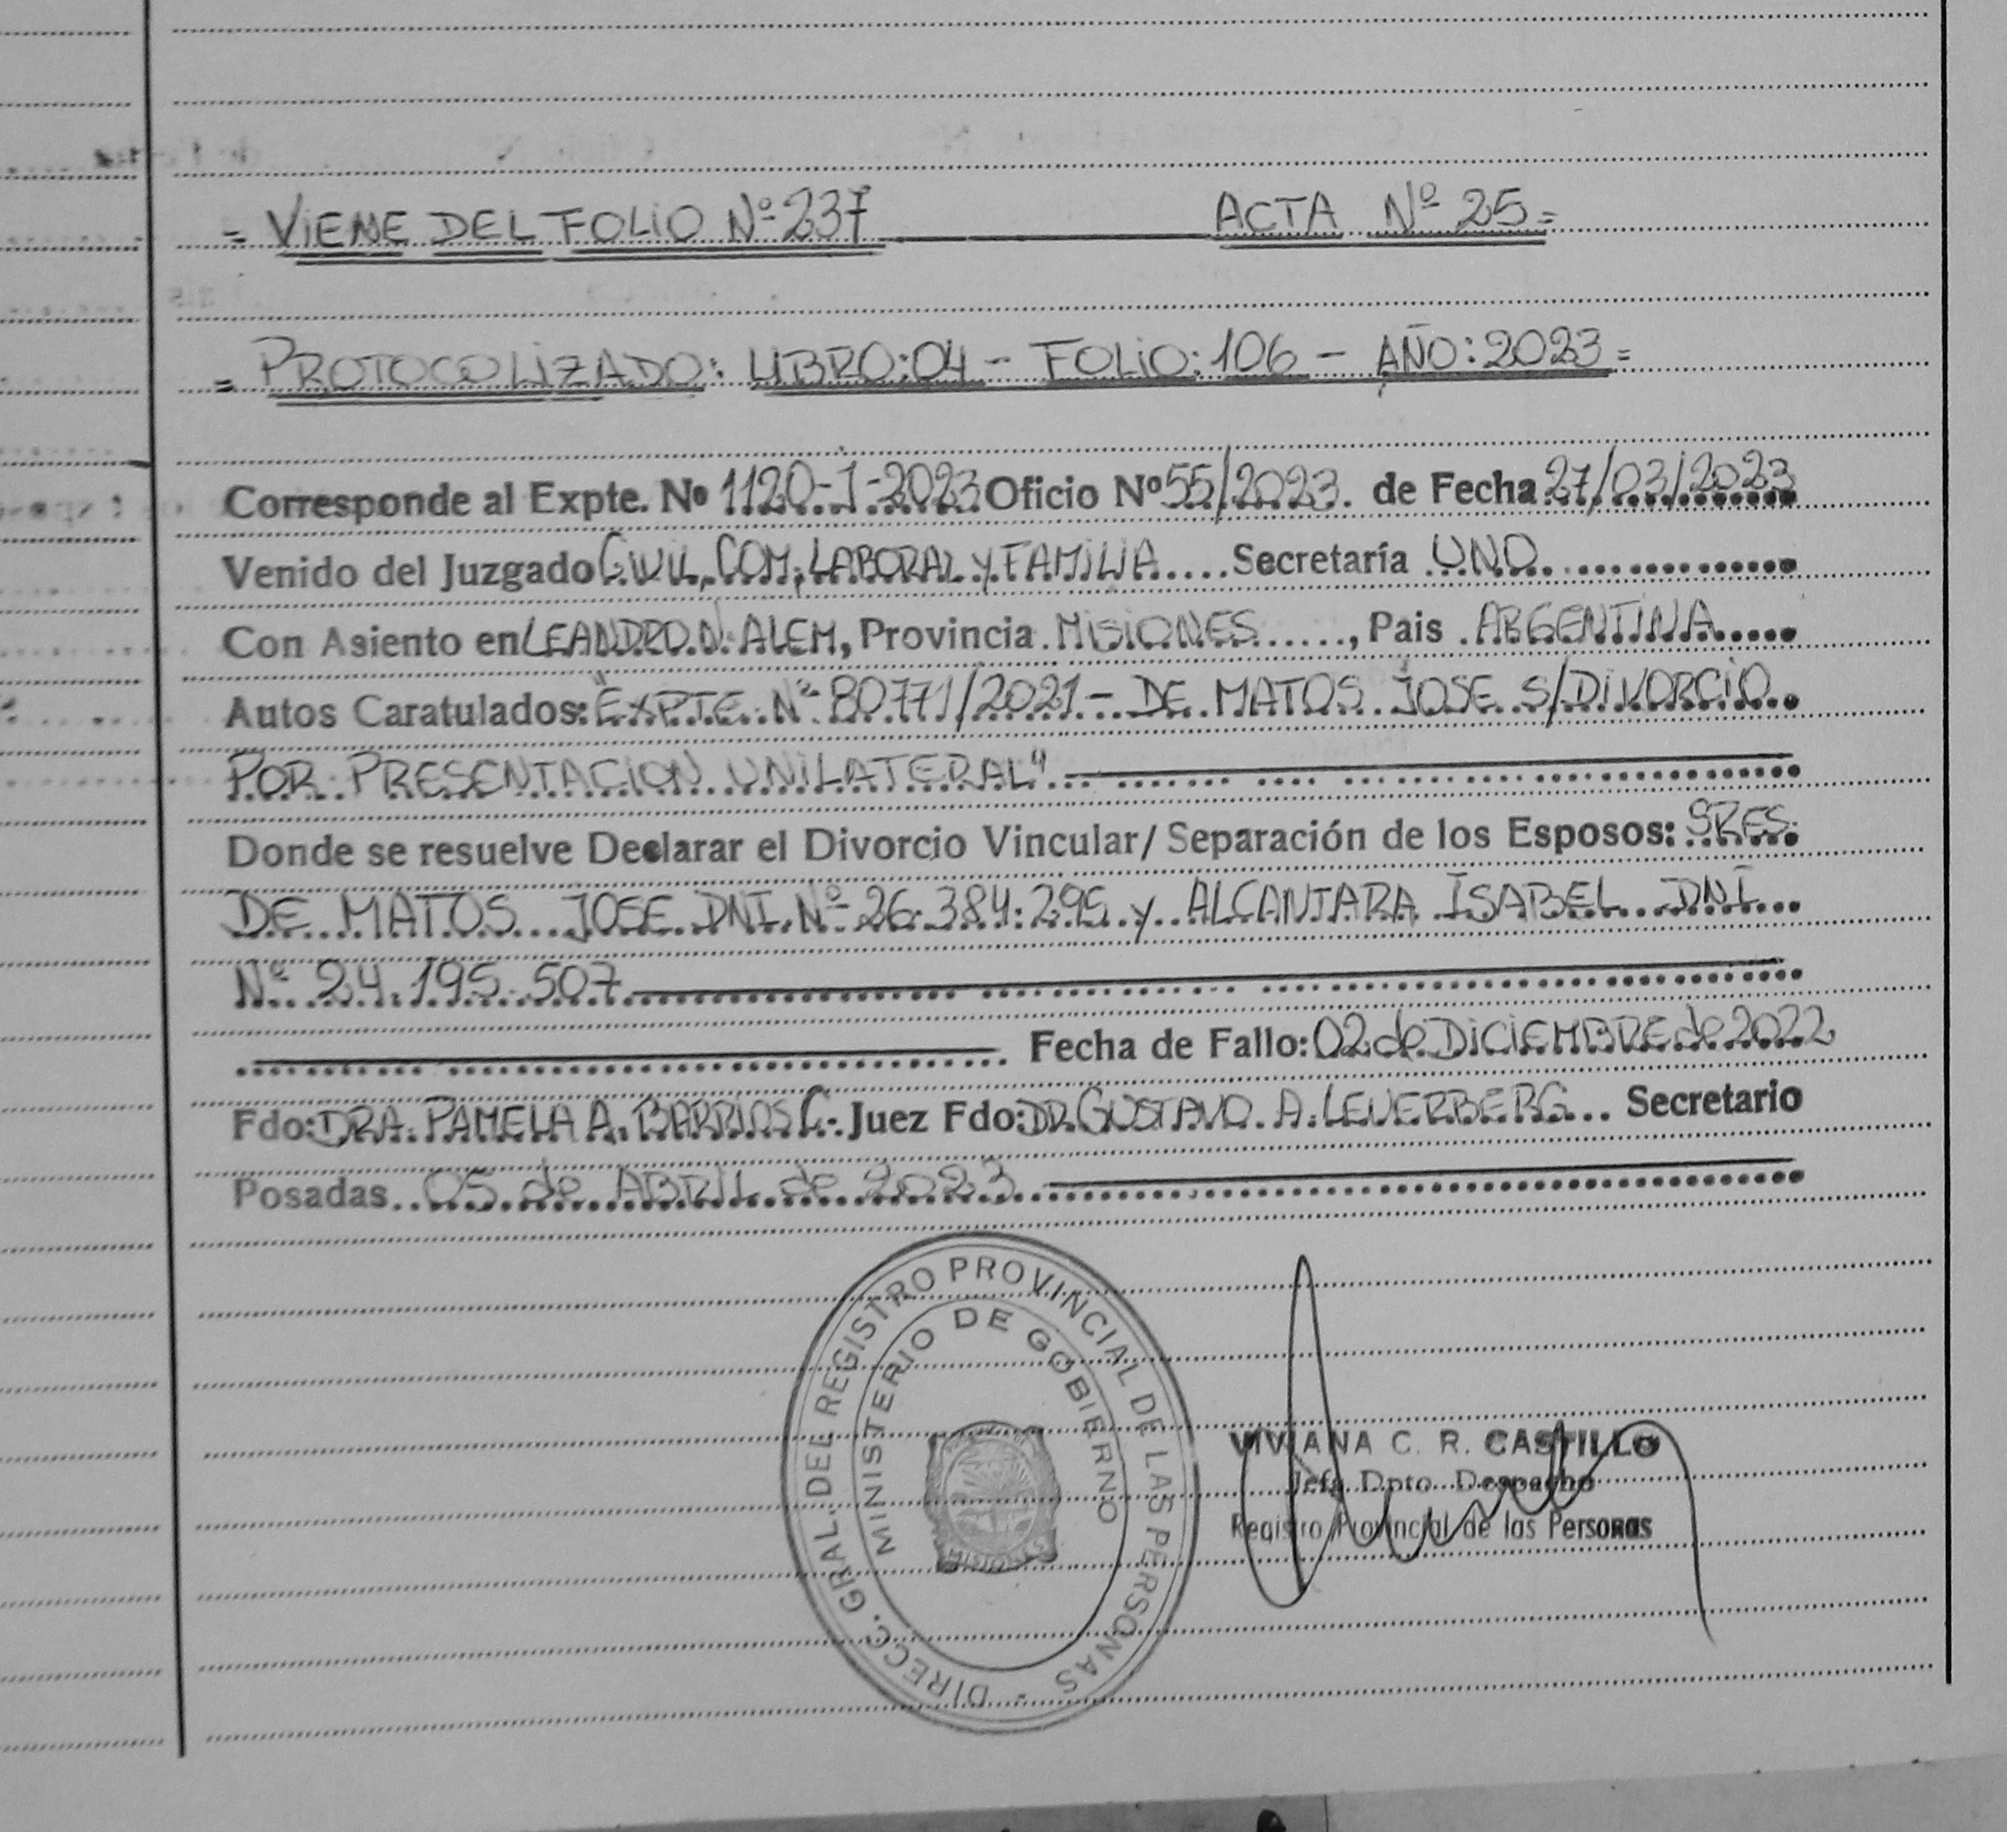 = VIENE DEL FOLIO Nº 237 ACTA Nº 25 =
= PROTOCOLIZADO: LIBRO: 04 - FOLIO: 106 - AÑO: 2023 =
Corresponde al Expte. Nº 1120-J-2023 Oficio Nº 55/2023. de Fecha 27/03/2023
Venido del Juzgado CIVIL, COM, LABORAL Y FAMILIA.... Secretaría UNO
Con Asiento en LEANDRO N. ALEM, Provincia MISIONES ....., Pais ARGENTINA
Autos Caratulados: "EXPTE. Nº 80771/2021 - DE MATOS JOSE S/DIVORCIO
POR PRESENTACION UNILATERAL"
Donde se resuelve Declarar el Divorcio Vincular/ Separación de los Esposos: SRES.
DE MATOS JOSE DNI. Nº 26.384.295 y ALCANTARA ISABEL DNI
Nº 24.195.507
Fecha de Fallo: 02 de DICIEMBRE de 2022
Fdo: DRA. PAMELA A. BARRIOS C. Juez Fdo: DR. GUSTAVO A. LEVERBERG... Secretario
Posadas.. 05 de ABRIL de 2023
DIRECC. GRAL. DEL REGISTRO PROVINCIAL DE LAS PERSONAS -
MINISTERIO DE GOBIERNO
VIVIANA C. R. CASTILLO
Jefa Dpto. Despacho
Registro Provincial de las Personas